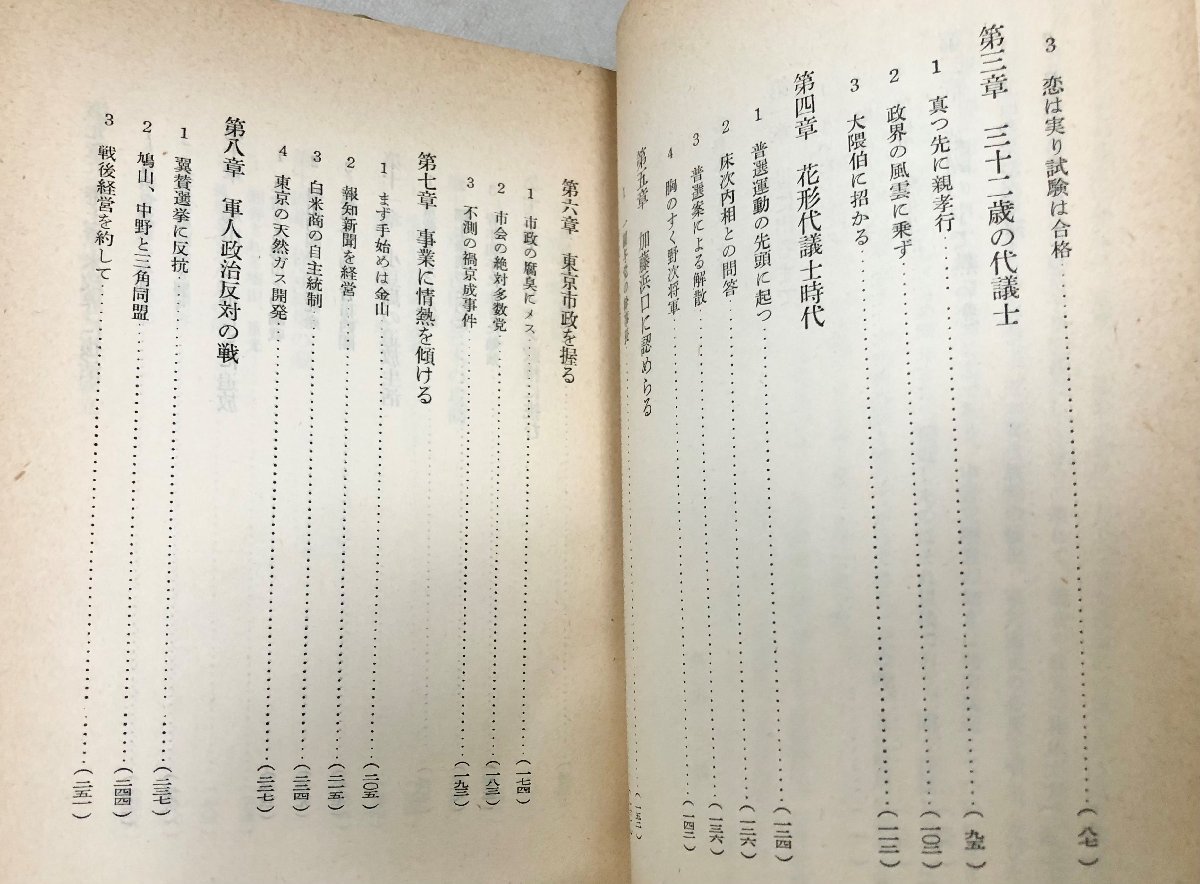 3 恋は実り試験は合格……(八七)
第三章 三十二歳の代議士
1 真つ先に親孝行……(九五)
2 政界の風雲に乗ず……(一〇二)
3 大隈伯に招かる……(一一二)
第四章 花形代議士時代
1 普選運動の先頭に起つ……(一二四)
2 床次内相との問答……(一二六)
3 普選案による解散……(一三六)
4 胸のすく野次将軍……(一四二)
第五章 加藤浜口に認めらる
(一五二)
第六章 東京市政を握る
1 市政の腐臭にメス……(一七四)
2 市会の絶対多数党……(一八三)
3 不測の禍京成事件……(一九三)
第七章 事業に情熱を傾ける
1 まず手始めは金山……(二〇五)
2 報知新聞を経営……(二一五)
3 白米商の自主統制……(二二四)
4 東京の天然ガス開発……(二二七)
第八章 軍人政治反対の戦
1 翼賛選挙に反抗……(二三七)
2 鳩山、中野と三角同盟……(二四四)
3 戦後経営を約して……(二五一)